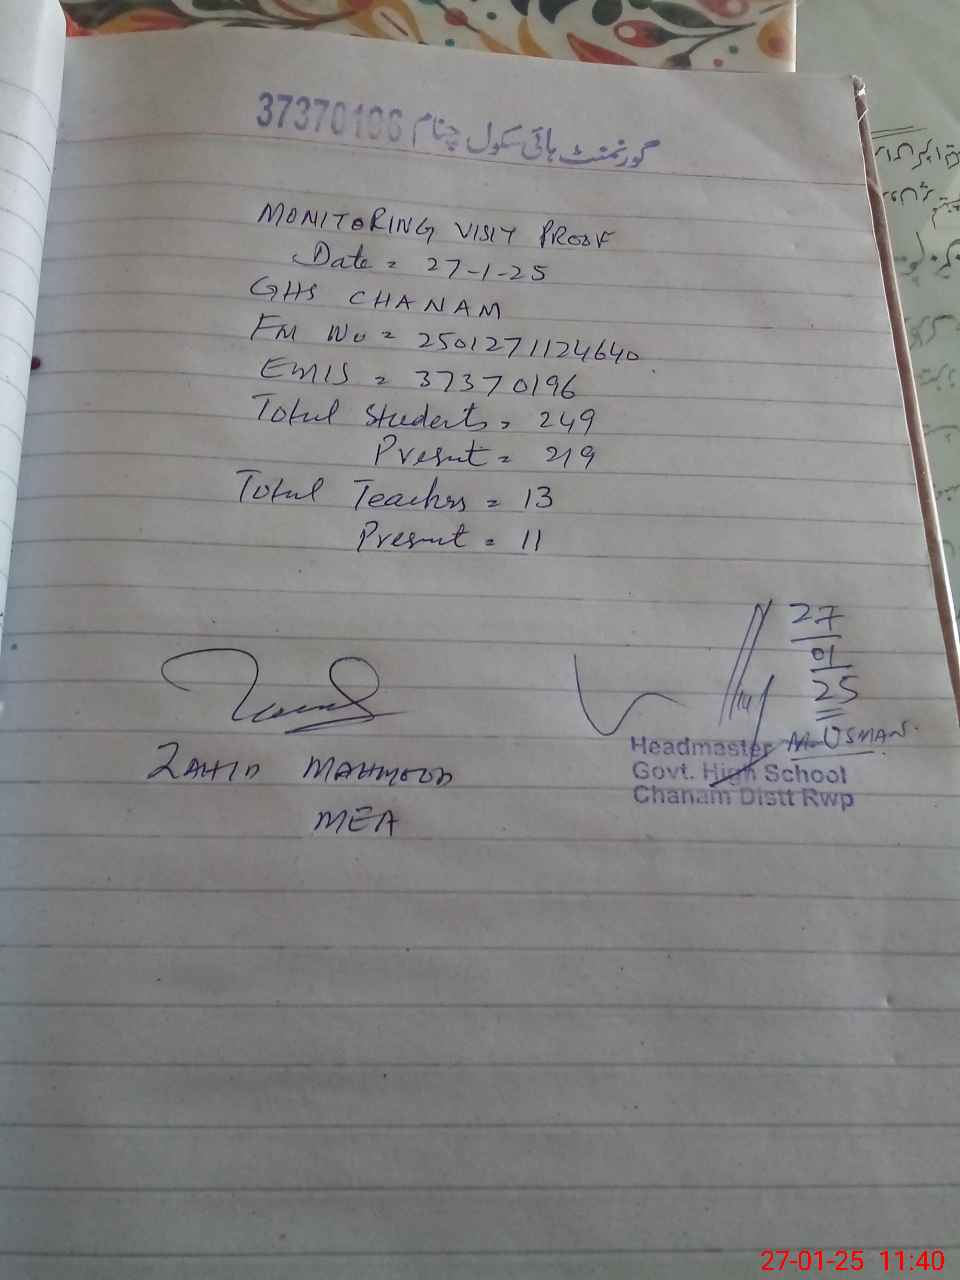 37370196 گورنمنٹ ہائی سکول چنام
MONITORING VISIT PROOF
Date = 27-1-25
GHS CHANAM
FM No = 2501271124640
EMIS = 37370196
Total Students = 249
Present = 219
Total Teachers = 13
Present = 11
27
01
25
M. USMAN
Headmaster
Govt. High School
Chanam Distt Rwp
ZAHID MAHMOOD
MEA
27-01-25 11:40